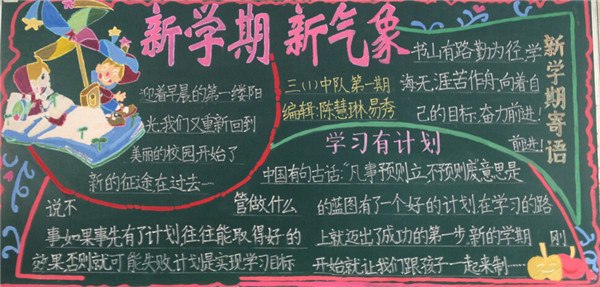 新学期 新气象
迎着早晨的第一缕阳
光,我们又重新回到
美丽的校园开始了
新的征途在过去……
三(1)中队第一期
编辑:陈慧琳 易秀
书山有路勤为径,学
海无涯苦作舟,向着自
己的目标,奋力前进!
前进!
新学期寄语
学习有计划
中国有句古话:“凡事预则立不预则废意思是
说不 管做什么 的蓝图有了一个好的计划在学习的路
事如果事先有了计划往往能取得好的 上就迈出了成功的第一步,新的学期 刚
效果否则就可能失败计划是实现学习目标 开始就让我们跟孩子一起来制……